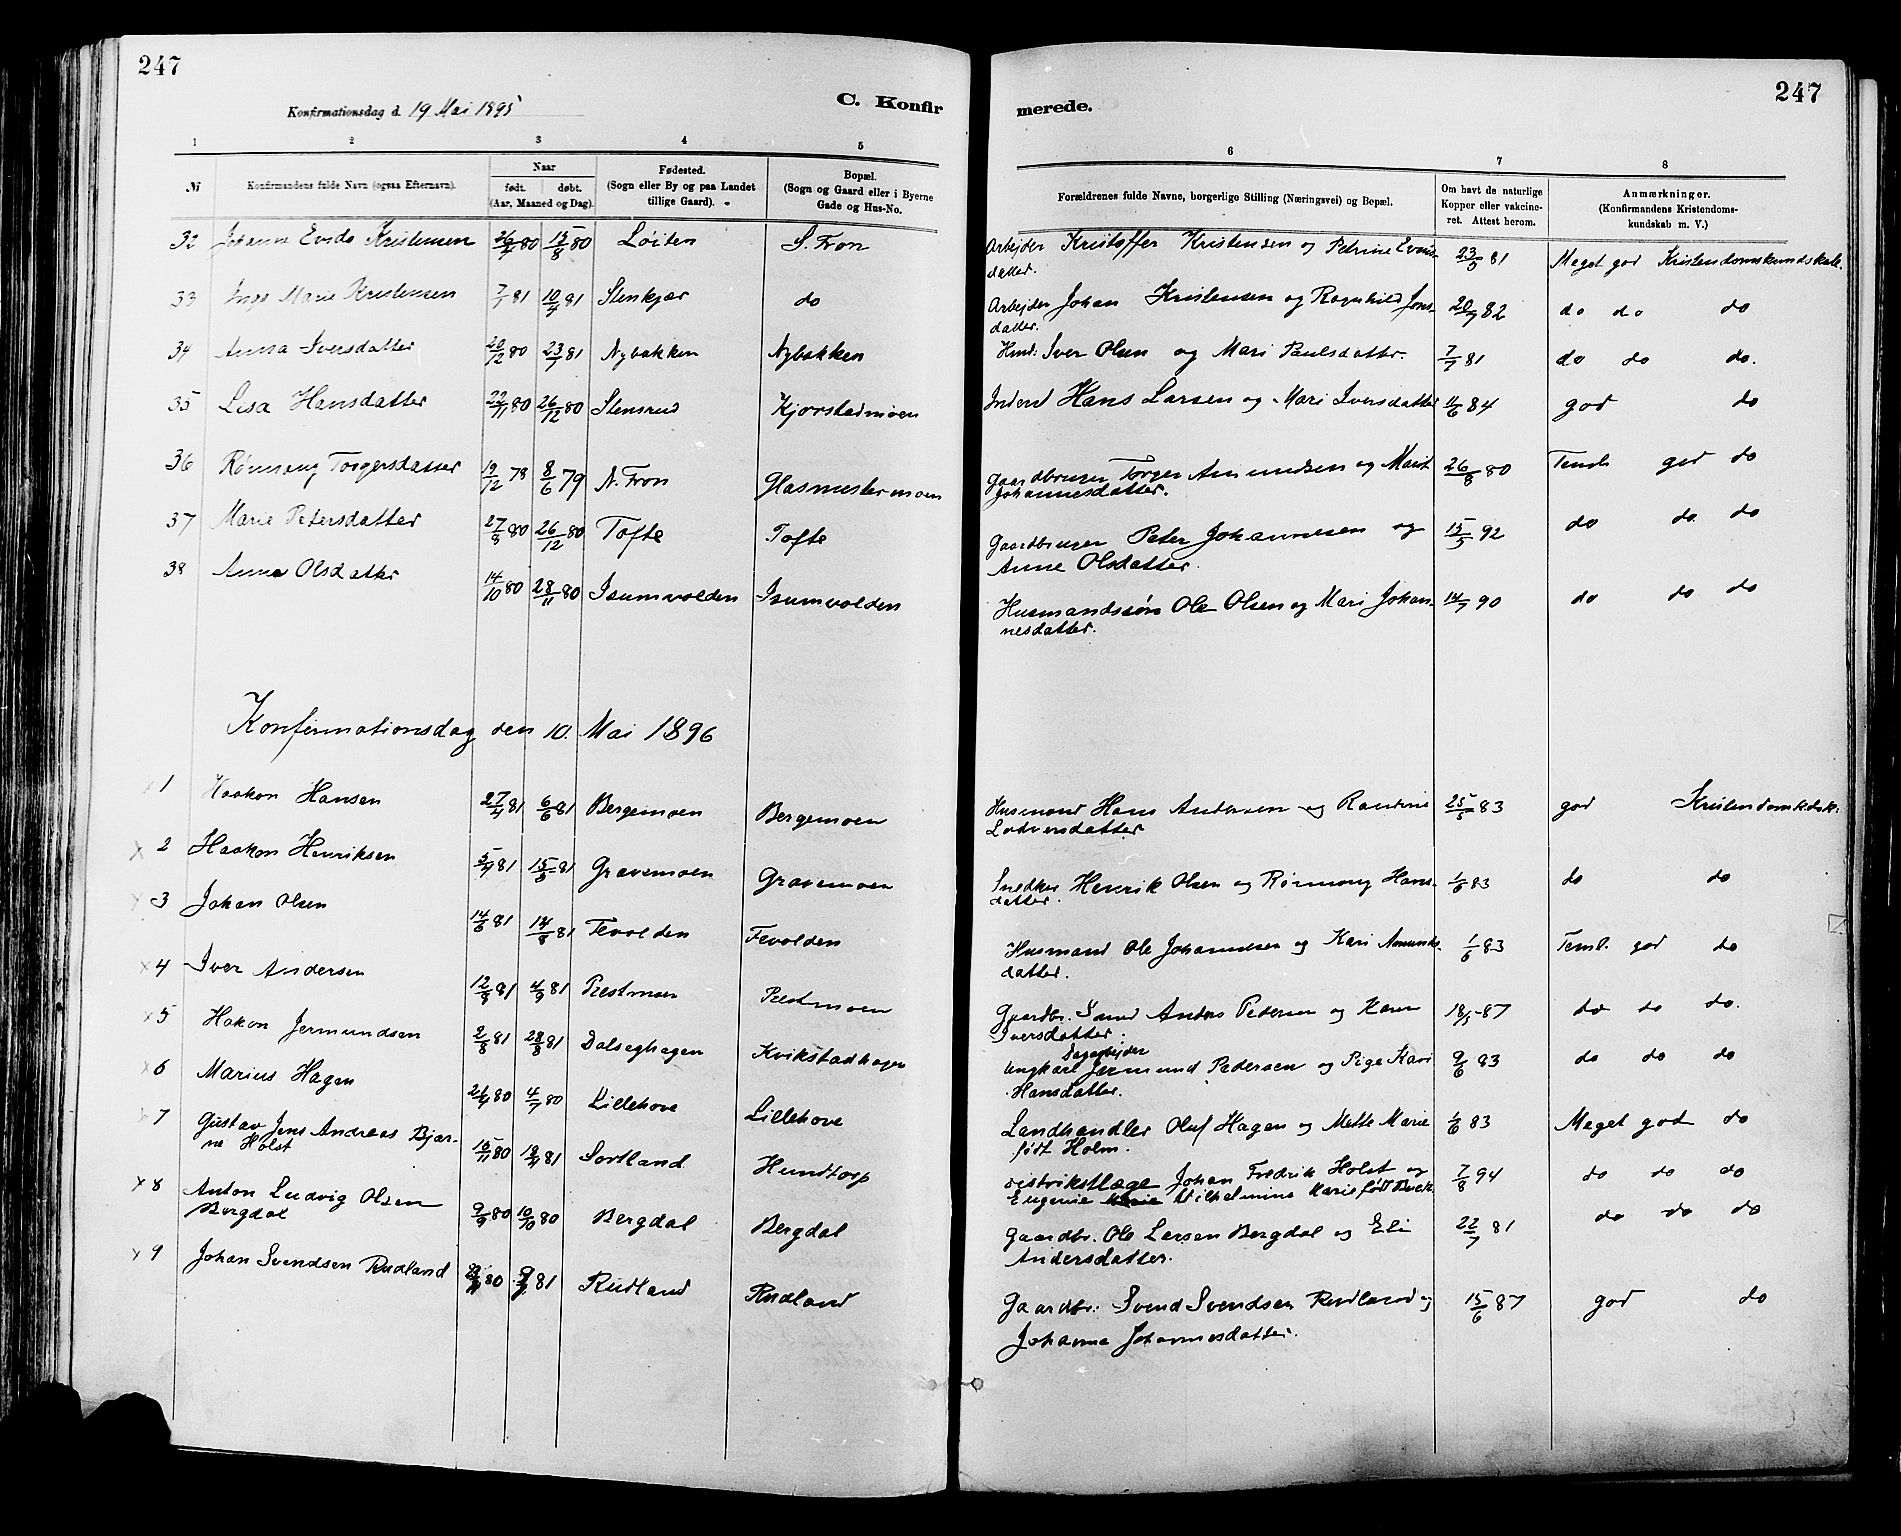 247
Konfirmationsdag d. 19 Mai 1895
C. Konfir
1 2 3 4 5
№
Konfirmandens fulde Navn (ogsaa Efternavn).
Naar
født. døbt.
(Aar, Maaned og Dag).
Fødested.
(Sogn eller By og paa Landet
tillige Gaard).
Bopæl.
(Sogn og Gaard eller i Byerne
Gade og Hus-No.
32 Johanne Kristensen 26/4 80 15/8 80 Løiten S. Fron
33 Inga Marie Kristensen 7/1 81 10/4 81 Stenkjær do
34 Anna Iversdatter 20/12 80 23/1 81 Nybakken Nybakken
35 Lisa Hansdatter 22/11 80 26/12 80 Stensrud Kjorstadmoen
36 Rønnaug Torgersdatter 19/12 78 8/6 79 N. Fron Glasmestermoen
37 Marie Petersdatter 27/8 80 26/12 80 Tofte Tofte
38 Anne Olsdatter 14/10 80 28/11 80 Isumvolden Isumvolden
Konfirmationsdag den 10. Mai 1896
x 1 Haakon Hansen 27/4 81 6/6 81 Bergemoen Bergemoen
x 2 Haakon Henriksen 5/4 81 15/5 81 Gravemoen Gravemoen
x 3 Johan Olsen 14/6 81 14/8 81 Tevolden Tevolden
x 4 Iver Andersen 12/8 81 4/9 81 Prestmoen Prestmoen
x 5 Hakon Jermundsen 2/8 81 28/8 81 Dalseghagen Kvikstadhagen
x 6 Marius Hagen 4/7 80 Lillehove Lillehove
x 7 Gustav Jens Andreas Bjar-
ne Holst 15/11 80 18/4 81 Sortland Hundtorp
x 8 Anton Ludvig Olsen
Bergdal 9/9 80 10/10 80 Bergdal Bergdal
x 9 Johan Svendsen Rudland 80 81 Rudland Rudland
247
merede.
6 7 8
Forældrenes fulde Navne, borgerlige Stilling (Næringsvei) og Bopæl.
Om havt de naturlige
Kopper eller vakcine-
ret. Attest herom.
Anmærkninger.
(Konfirmandens Kristendoms-
kundskab m. V.)
Arbejder Kristoffer Kristensen og Petrine Evens-
datter. 23/5 81 Meget god Kristendomskundskab.
Arbejder Johan Kristensen og Ragnhild Jons-
datter. 20/7 82 do do do
Husm: Iver Olsen og Mari Paulsdatter. 7/7 81 do do do.
Inderst Hans Larsen og Mari Iversdatter 11/6 84 god do
Gaardbruger Torger Amundsen og Marit
Johannesdatter. 26/8 80 Teml. god do
Gaardbruger Peter Johannesen og
Anne Olsdatter. 15/5 92 do do do
Husmandssøn Ole Olsen og Mari Johan-
nesdatter. 14/7 90 do do do
Husmand Hans Andersen og Randine
Lodversdatter 25/5 83 god Kristendomskdsk.
Snedker Henrik Olsen og Rønnaug Hans-
datter. 1/6 83 do do
Husmand Ole Johannesen og Kari Amunds-
datter. 1/6 83 Teml. god do
Gaardbr. Anders Petersen og Karen
Iversdatter. 18/5 87 do do do.
Dagarbejder
Ungkarl Jermund Pedersen og Pige Kari
Hansdatter. 9/6 83 do do do
Landhandler Oluf Hagen og Mette Marie
født Holm. 1/6 83 Meget god do
Distriktslæge Johan Fredrik Holst og
Eugenie Wilhelmine Marie født 7/8 94 do do do
Gaardbr. Ole Larsen Bergdal og Eli
Andersdatter. 22/7 81 do do do
Gaardbr: Svend Svendsen Rudland og
Johanna Johannesdatter. 15/6 87 god do